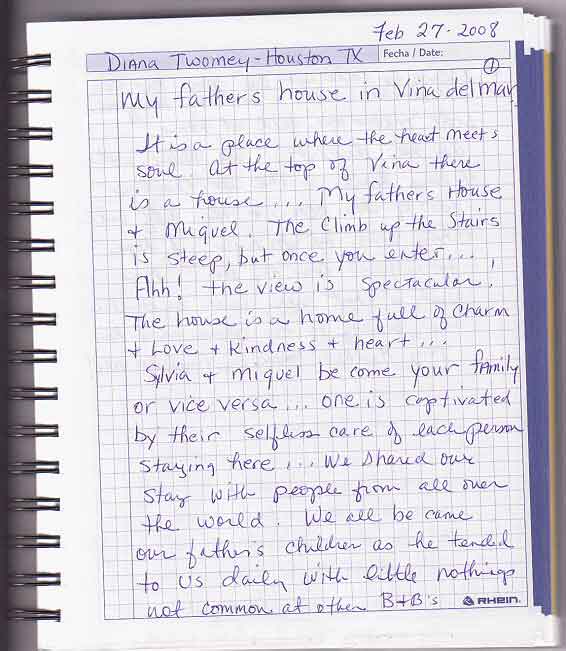 Feb 27-2008
Diana Twomey-Houston TX Fecha / Date:
1
My fathers house in Viña del mar
It is a place where the heart meets
soul. At the top of Vina there
is a house... My fathers House
+ Miguel. The Climb up the Stairs
is steep, but once you enter...
Ahh! the view is Spectacular!
The house is a home full of Charm
+ Love + kindness + heart...
Sylvia + Miguel be come your family
or vice versa... one is captivated
by their selfless care of each person
staying here... We shared our
stay with people from all over
the world. We all be came
our father's children as he tended
to us daily with little nothings
not common at other B+B's
RHEIN.